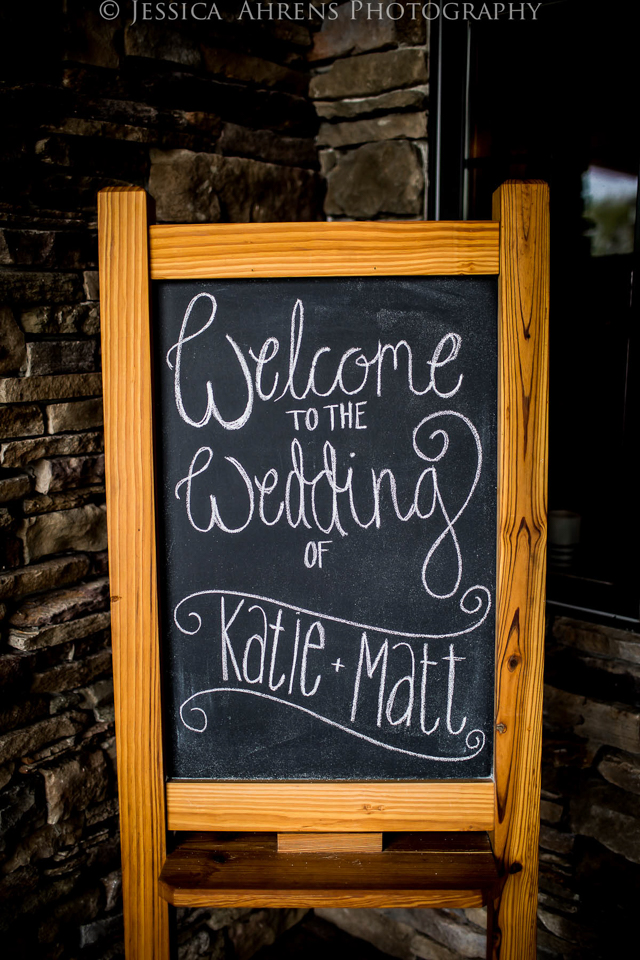 © Jessica Ahrens Photography
Welcome
TO THE
Wedding
OF
Katie + Matt